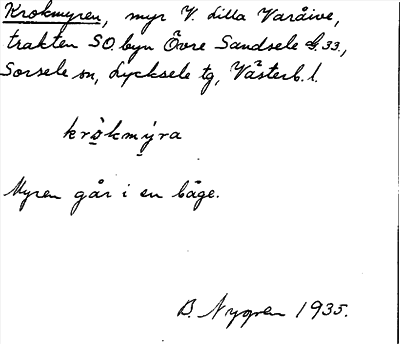 Krokmyren, myr V. Lilla Varåive,
trakten SO. byn Övre Sandsele G. 33.,
Sorsele sn, Lycksele tg, Västerb. l.
krò̱kmý̱ra
Myren går i en båge.
B. Nygren 1935.